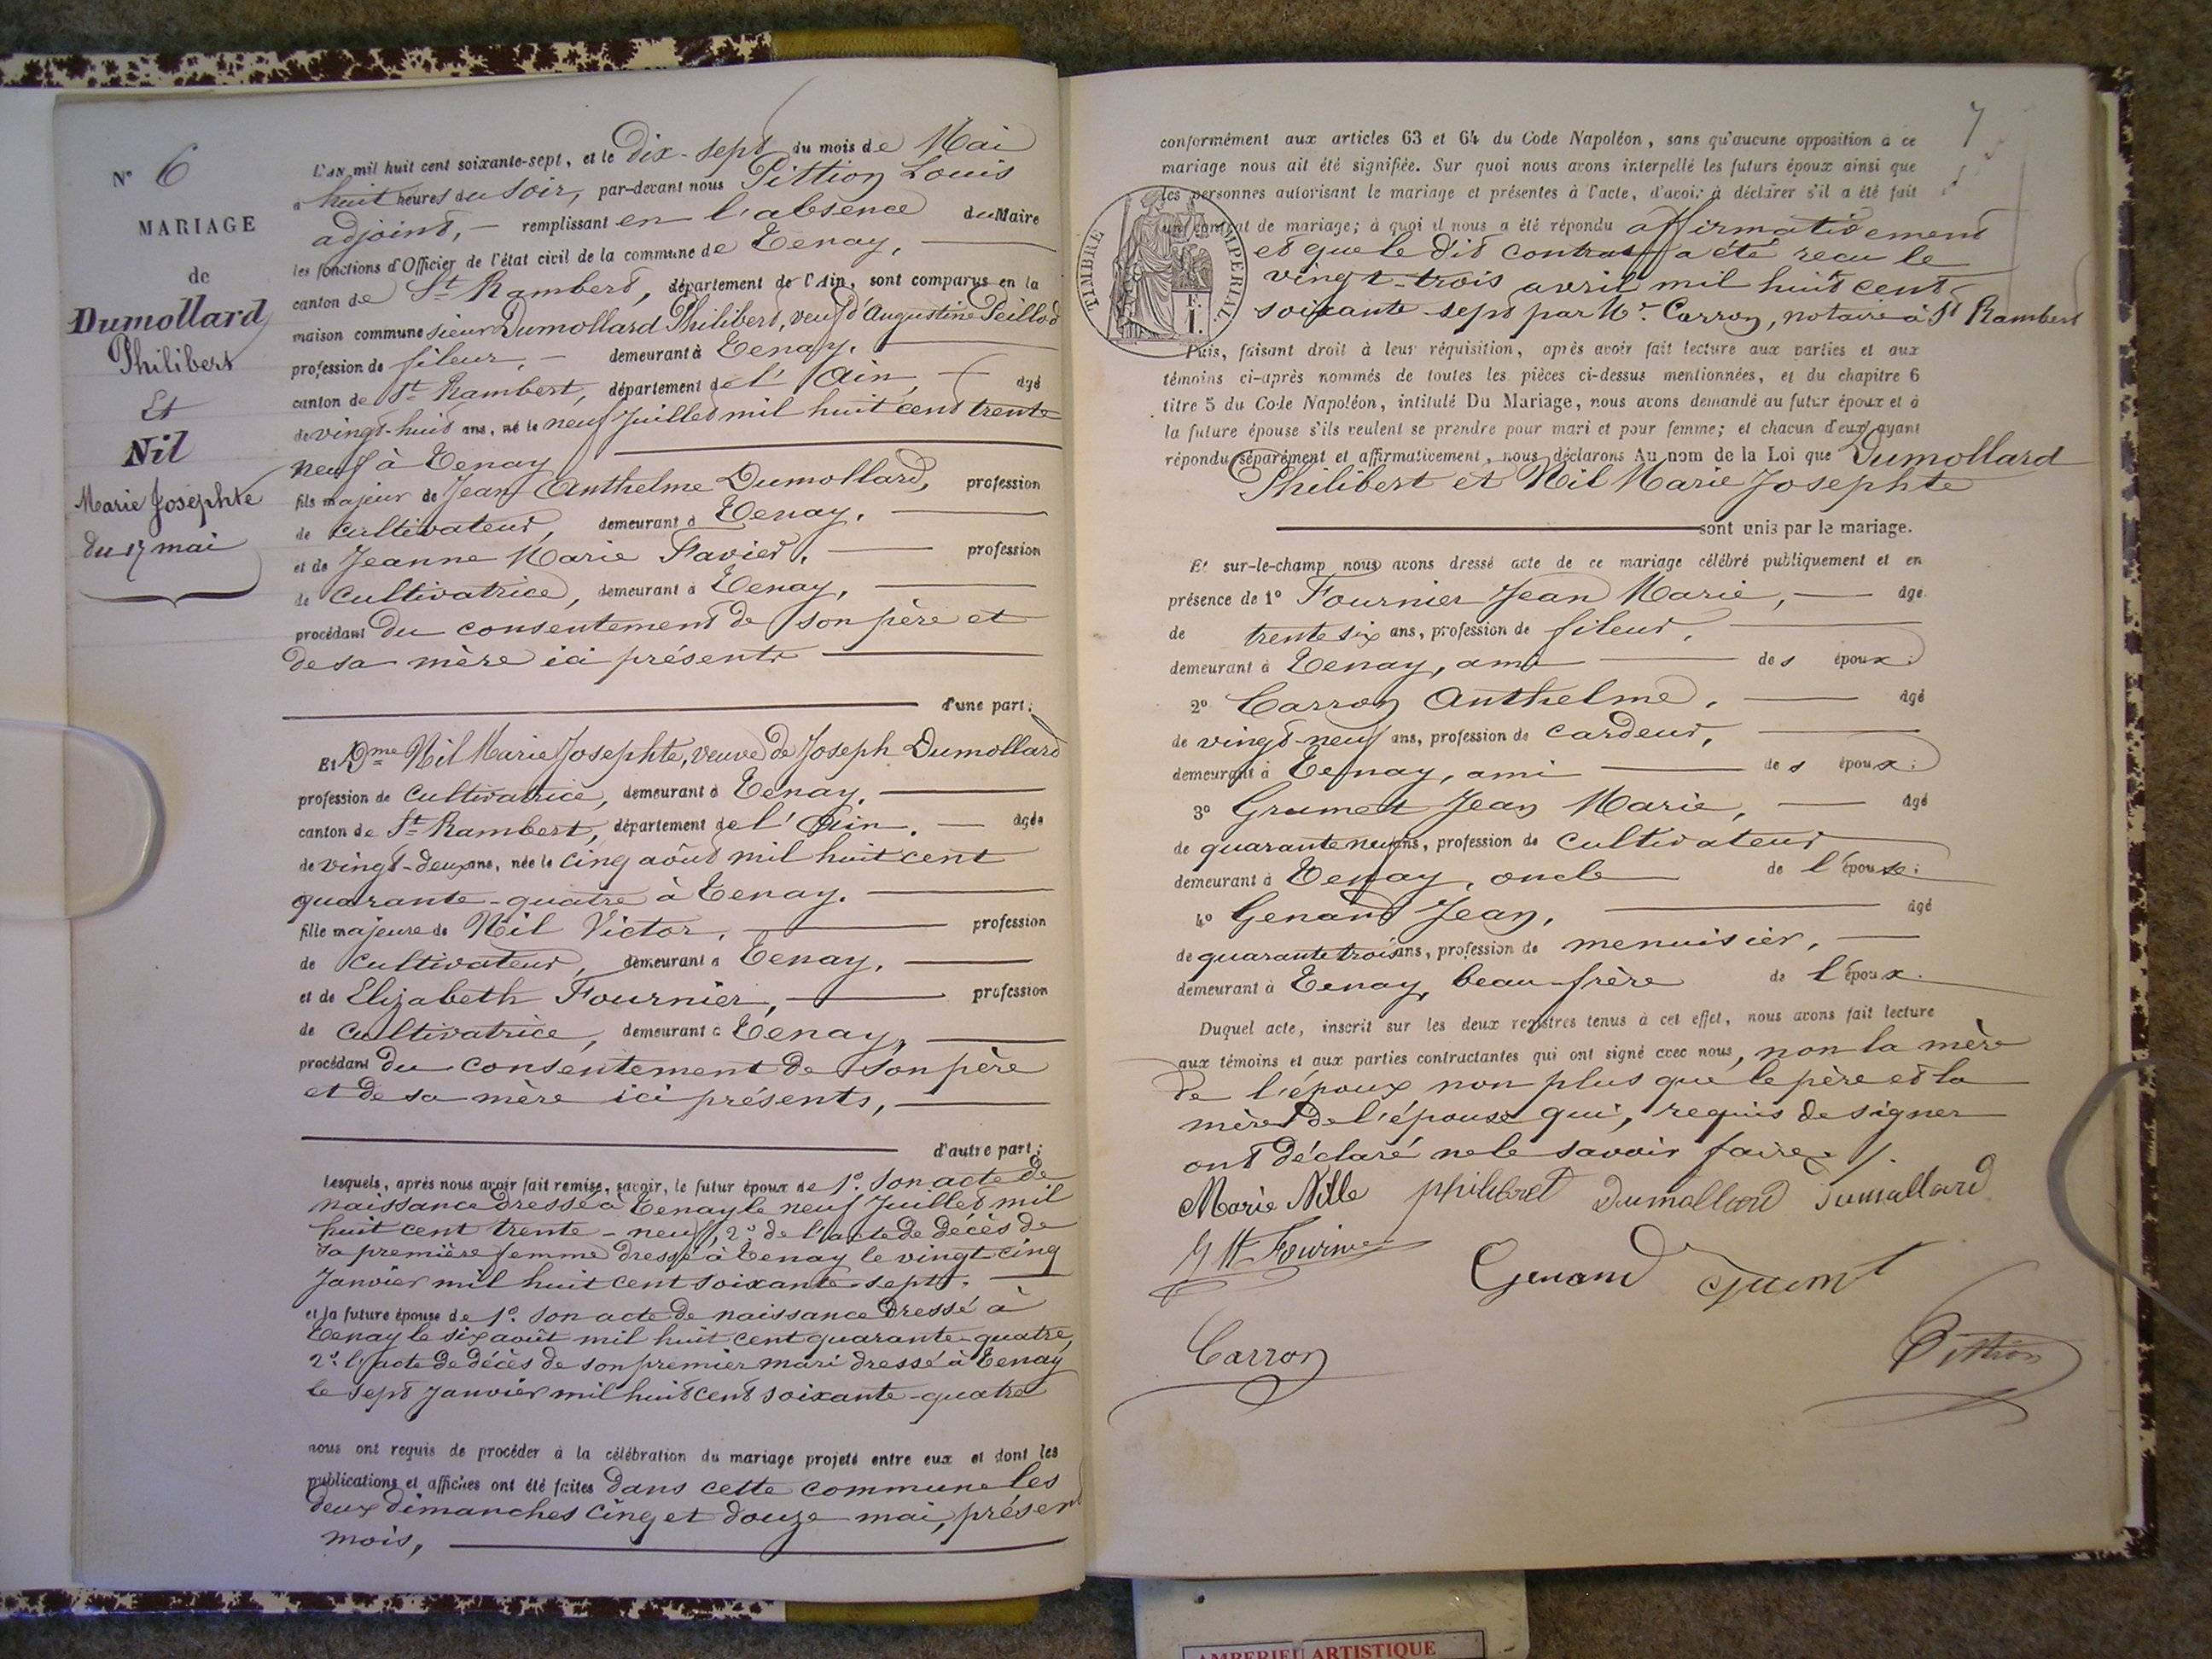 N° 6
MARIAGE
de
Dumollard
Philibert
Et
Nil
Marie Josephte
du 17 mai
L'AN mil huit cent soixante-sept, et le dix-sept du mois de Mai
à huit heures du soir, par-devant nous Pittion Louis
adjoint, remplissant en l'absence du Maire
les fonctions d'Officier de l'état civil de la commune de Tenay,
canton de St Rambert, département de l'Ain, sont comparus en la
maison commune sieur Dumollard Philibert, veuf d'Augustine Peillod
profession de fileur, demeurant à Tenay,
canton de St Rambert, département de l'Ain, âgé
de vingt-huit ans, né le neuf Juillet mil huit cent trente
neuf à Tenay
fils majeur de Jean Anthelme Dumollard, profession
de cultivateur, demeurant à Tenay,
et de Jeanne Marie Favier, profession
de cultivatrice, demeurant à Tenay,
procédant du consentement de son père et
de sa mère ici présents
d'une part;
Et Dme Nil Marie Josephte, veuve de Joseph Dumollard
profession de cultivatrice, demeurant à Tenay,
canton de St Rambert, département de l'Ain, âgée
de vingt-deux ans, née le cinq août mil huit cent
quarante-quatre à Tenay.
fille majeure de Nil Victor, profession
de cultivateur, demeurant à Tenay,
et de Elizabeth Fournier, profession
de cultivatrice, demeurant à Tenay,
procédant du consentement de son père
et de sa mère ici présents,
d'autre part;
Lesquels, après nous avoir fait remise, savoir, le futur époux de 1°. Son acte de
naissance dressé à Tenay le neuf Juillet mil
huit cent trente-neuf, 2° de l'acte de décès de
sa première femme dressé à Tenay le vingt-cinq
Janvier mil huit cent soixante-sept.
et la future épouse de 1°. Son acte de naissance dressé à
Tenay le six août mil huit cent quarante-quatre,
2°. l'acte de décès de son premier mari dressé à Tenay
le sept Janvier mil huit cent soixante-quatre
nous ont requis de procéder à la célébration du mariage projeté entre eux et dont les
publications et affiches ont été faites dans cette commune les
deux dimanches cinq et douze mai, présent
mois,
7
conformément aux articles 63 et 64 du Code Napoléon, sans qu'aucune opposition à ce
mariage nous ait été signifiée. Sur quoi nous avons interpellé les futurs époux ainsi que
les personnes autorisant le mariage et présentes à l'acte, d'avoir à déclarer s'il a été fait
un contrat de mariage; à quoi il nous a été répondu affirmativement
TIMBRE IMPERIAL
1 F.
et que le dit contrat a été reçu le
vingt-trois avril mil huit cent
soixante-sept par Mr. Carron, notaire à St Rambert
Puis, faisant droit à leur réquisition, après avoir fait lecture aux parties et aux
témoins ci-après nommés de toutes les pièces ci-dessus mentionnées, et du chapitre 6
titre 5 du Code Napoléon, intitulé Du Mariage, nous avons demandé au futur époux et à
la future épouse s'ils veulent se prendre pour mari et pour femme; et chacun d'eux ayant
répondu séparément et affirmativement, nous déclarons Au nom de la Loi que Dumollard
Philibert et Nil Marie Josephte
sont unis par le mariage.
Et sur-le-champ nous avons dressé acte de ce mariage célébré publiquement et en
présence de 1° Fournier Jean Marie, âgé
de trente six ans, profession de fileur,
demeurant à Tenay, ami des époux;
2° Carron Anthelme, âgé
de vingt-neuf ans, profession de cardeur,
demeurant à Tenay, ami des époux;
3° Grumet Jean Marie, âgé
de quarante neuf ans, profession de cultivateur
demeurant à Tenay, oncle de l'épouse;
4° Genand Jean, âgé
de quarante trois ans, profession de menuisier,
demeurant à Tenay, beau-frère de l'époux.
Duquel acte, inscrit sur les deux registres tenus à cet effet, nous avons fait lecture
aux témoins et aux parties contractantes qui ont signé avec nous, non la mère
de l'époux non plus que le père et la
mère de l'épouse qui, requis de signer
ont déclaré ne le savoir faire./.
Marie Nille philibret Dumollard Dumollard
J M Fournier
Genand
Carron
Pittion
AMBERIEU ARTISTIQUE